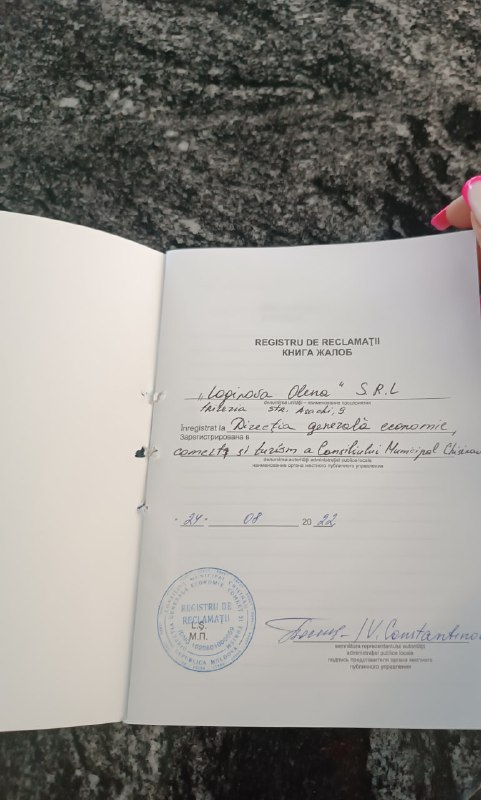 REGISTRU DE RECLAMAŢII
КНИГА ЖАЛОБ
„Loginova Olena" S.R.L
denumirea unităţii – наименование предприятия
str. Asachi, 9
Înregistrat la Direcția generală economie,
Зарегистрирована в
comerț și turism a Consiliului Municipal Chișinău
denumirea autorităţii administraţiei publice locale
наименование органа местного публичного управления
"24" 08 2022
REGISTRU DE
RECLAMAŢII
L.Ş.
М.П.
REPUBLICA MOLDOVA
V. Constantinov
semnătura reprezentantului autorităţii
administraţiei publice locale
подпись представителя органа местного
публичного управления